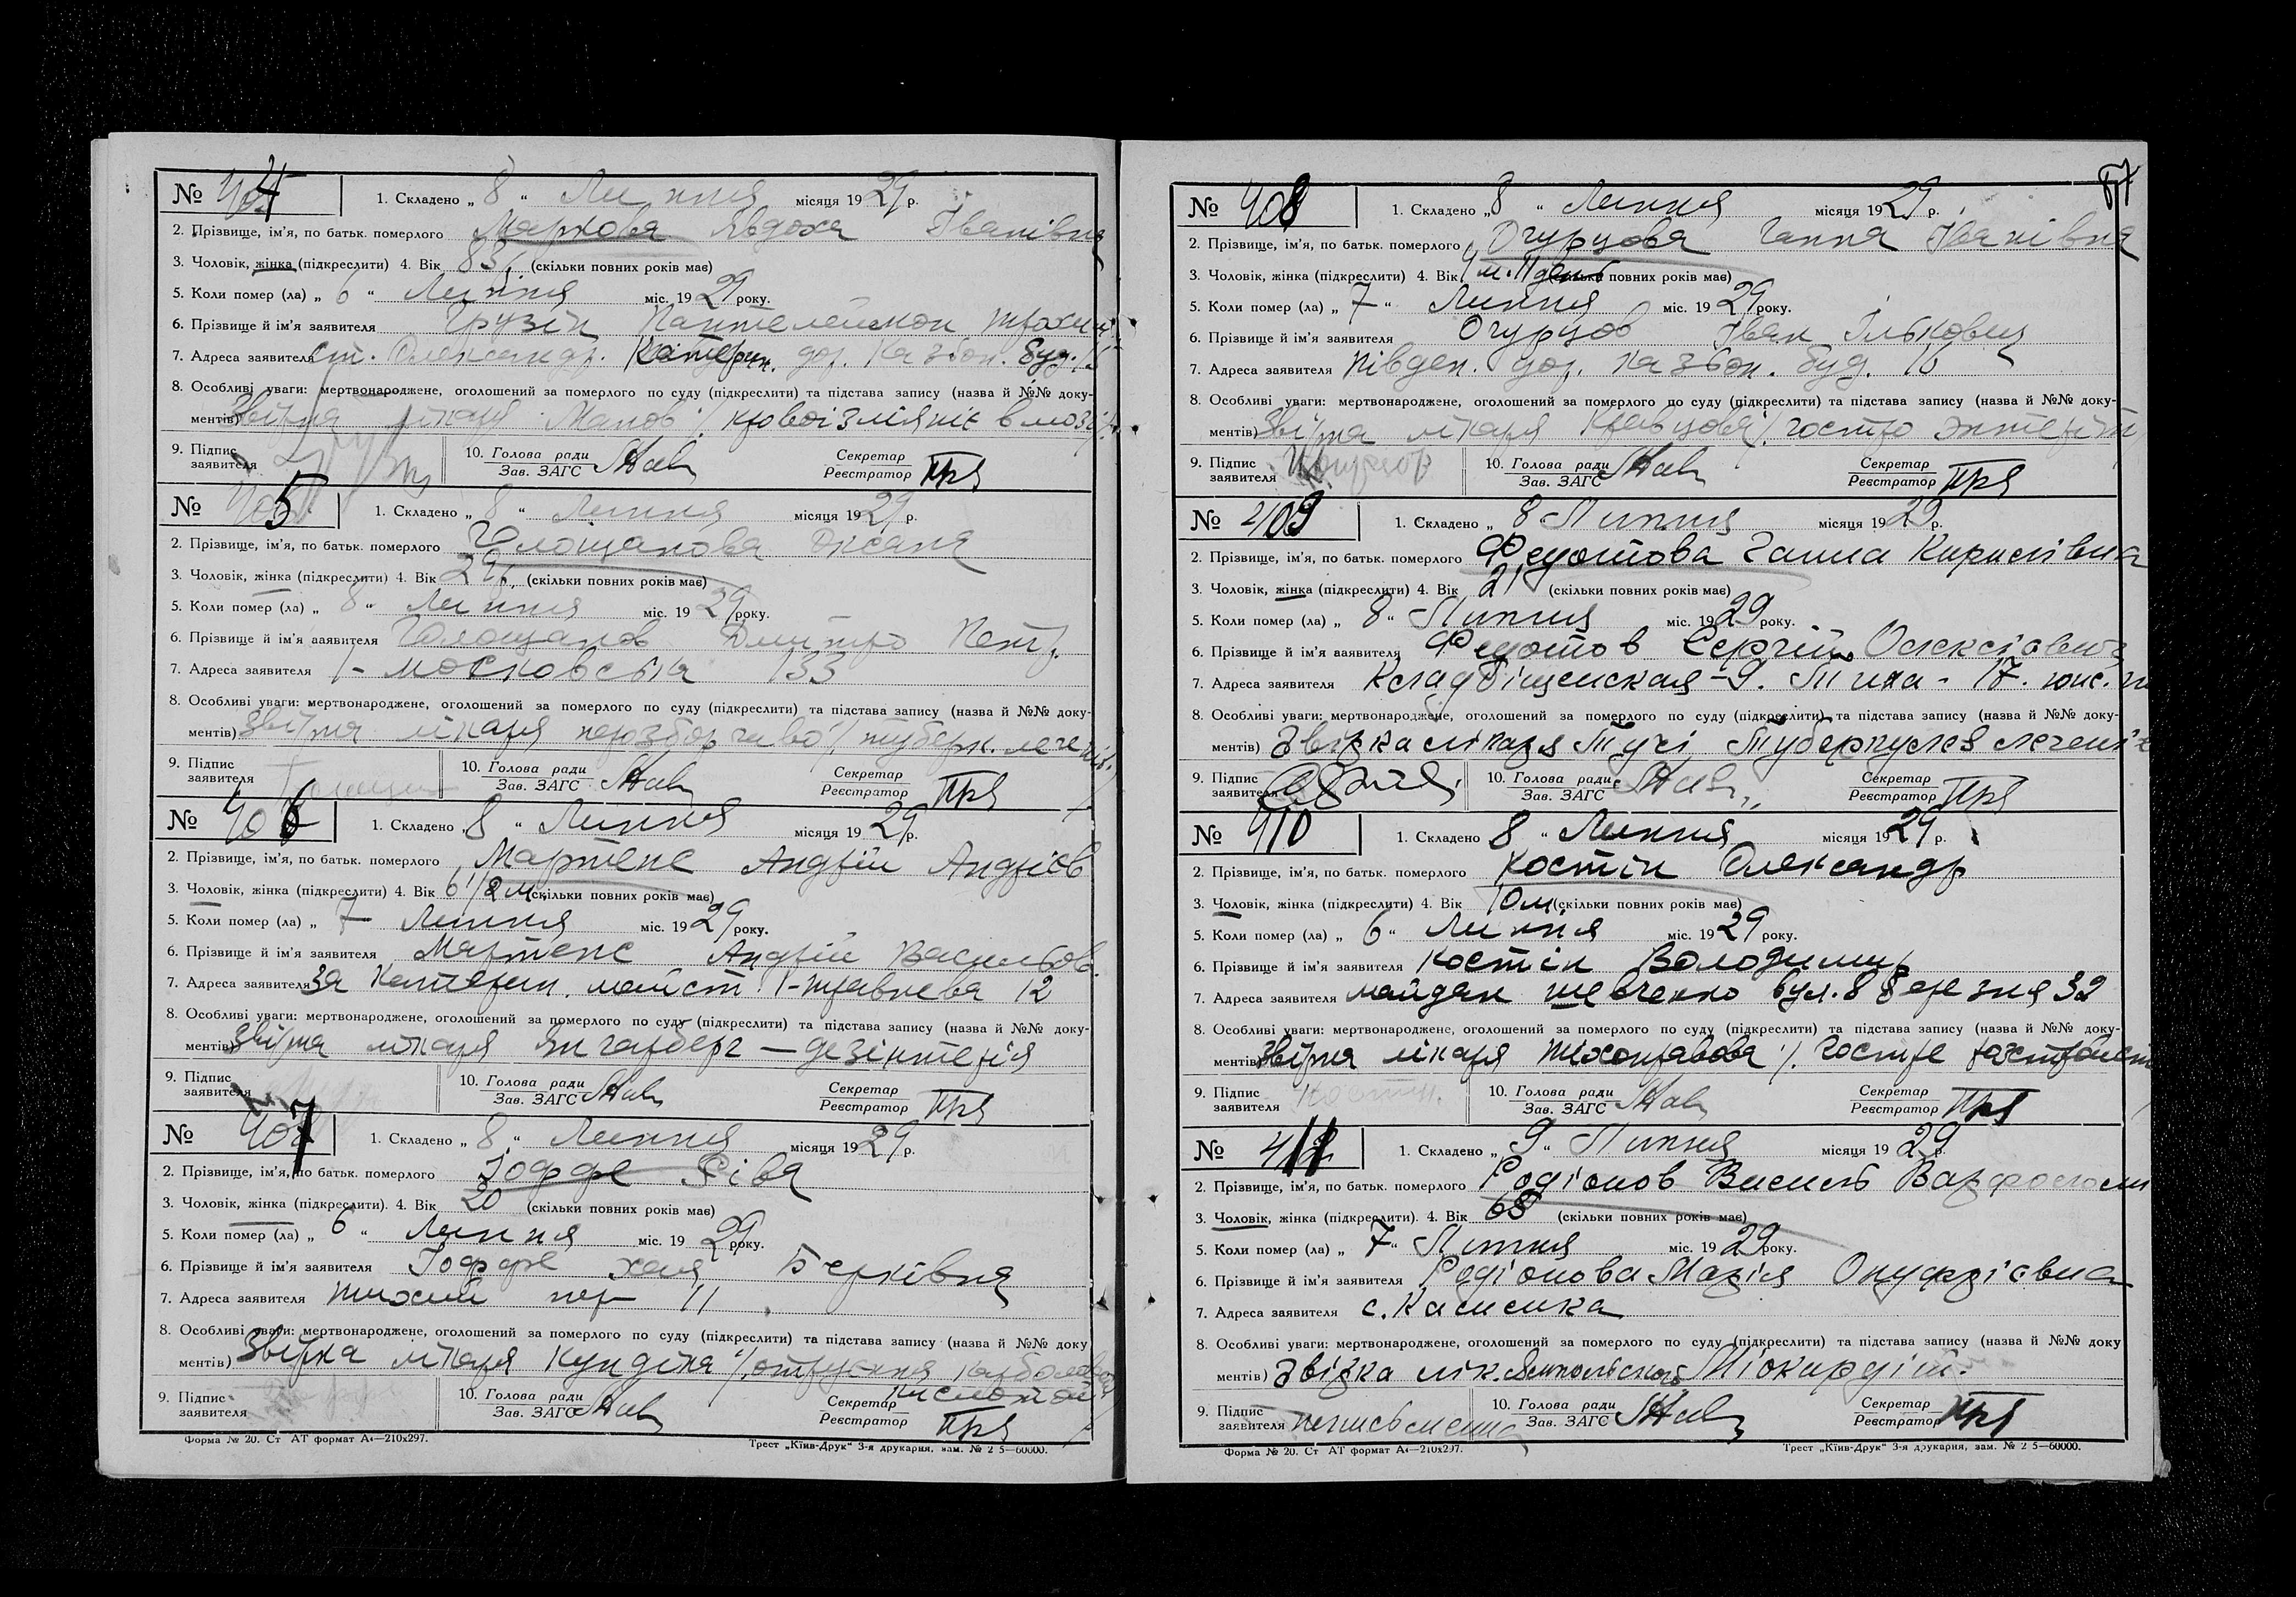 № 404 1. Складено „ 8 “ Липня місяця 1929 р.
2. Прізвище, ім'я, по батьк. померлого Маркова Явдоха Іванівна
3. Чоловік, жінка (підкреслити) 4. Вік 83 (скільки повних років має)
5. Коли помер (ла) „ 6 “ Липня міс. 1929 року.
6. Прізвище й ім'я заявителя Грузін Пантелеймон
7. Адреса заявителя ст. Олександр. Катерин. дор. Казбон. буд.
8. Особливі уваги: мертвонароджене, оголошений за померлого по суду (підкреслити) та підстава запису (назва й №№ доку-
ментів) Звірка лікаря кровоізліяніє в мозг
9. Підпис заявителя 10. Голова ради Зав. ЗАГС Секретар Реєстратор
№ 405 1. Складено „ 8 “ Липня місяця 1929 р.
2. Прізвище, ім'я, по батьк. померлого Голощапова Оксана
3. Чоловік, жінка (підкреслити) 4. Вік (скільки повних років має)
5. Коли помер (ла) „ 8 “ Липня міс. 1929 року.
6. Прізвище й ім'я заявителя Голощапов Дмитро Петр.
7. Адреса заявителя 1-Московська 133
8. Особливі уваги: мертвонароджене, оголошений за померлого по суду (підкреслити) та підстава запису (назва й №№ доку-
ментів) Звірка лікаря нерозбірчиво туберк. легенів.
9. Підпис заявителя 10. Голова ради Зав. ЗАГС Секретар Реєстратор
№ 406 1. Складено „ 8 “ Липня місяця 1929 р.
2. Прізвище, ім'я, по батьк. померлого Мартенс Андрій Андрієв
3. Чоловік, жінка (підкреслити) 4. Вік 6 1/2 м (скільки повних років має)
5. Коли помер (ла) „ 7 Липня міс. 1929 року.
6. Прізвище й ім'я заявителя Мартенс Андрій Васильов.
7. Адреса заявителя За Катерин. майст 1-травнева 12
8. Особливі уваги: мертвонароджене, оголошений за померлого по суду (підкреслити) та підстава запису (назва й №№ доку-
ментів) Звірка лікаря — дезінтерія
9. Підпис заявителя 10. Голова ради Зав. ЗАГС Секретар Реєстратор
№ 407 1. Складено „ 8 “ Липня місяця 1929 р.
2. Прізвище, ім'я, по батьк. померлого Іоффе Ріва
3. Чоловік, жінка (підкреслити). 4. Вік 20 (скільки повних років має)
5. Коли помер (ла) „ 6 “ Липня міс. 1929 року.
6. Прізвище й ім'я заявителя Іоффе Хая Берківна
7. Адреса заявителя Тихий пер 11
8. Особливі уваги: мертвонароджене, оголошений за померлого по суду (підкреслити) та підстава запису (назва й №№ доку
ментів) Звірка лікаря Кундіна отруєння карболовой
кислотой
9. Підпис заявителя 10. Голова ради Зав. ЗАГС Секретар Реєстратор
Форма № 20. Ст АТ формат А4—210х297. Трест „Київ-Друк“ 3-я друкарня, зам. № 2 5—60000.
87
№ 408 1. Складено „ 8 “ Липня місяця 1929 р.
2. Прізвище, ім'я, по батьк. померлого Огурцова Ганна Іванівна
3. Чоловік, жінка (підкреслити) 4. Вік 4 м. 11 день (скільки повних років має)
5. Коли помер (ла) „ 7 “ Липня міс. 1929 року.
6. Прізвище й ім'я заявителя Огурцов ІванІлькович
7. Адреса заявителя Півден. дор. Казбон. буд. 16
8. Особливі уваги: мертвонароджене, оголошений за померлого по суду (підкреслити) та підстава запису (назва й №№ доку-
ментів) Звірка лікаря Кравцова гостро энтеріт
9. Підпис заявителя 10. Голова ради Зав. ЗАГС Секретар Реєстратор
№ 409 1. Складено „ 8 Липня місяця 1929 р.
2. Прізвище, ім'я, по батьк. померлого Федотова Ганна Кирилівна
3. Чоловік, жінка (підкреслити) 4. Вік 21 (скільки повних років має)
5. Коли помер (ла) „ 8 “ Липня міс. 1929 року.
6. Прізвище й ім'я заявителя Федотов Сергій Олексієвич
7. Адреса заявителя Кладбіщенская-9.
8. Особливі уваги: мертвонароджене, оголошений за померлого по суду (підкреслити) та підстава запису (назва й №№ доку-
ментів) Звірка лікаря Туберкульоз легенів
9. Підпис заявителя 10. Голова ради Зав. ЗАГС Секретар Реєстратор
№ 410 1. Складено 8 “ Липня місяця 1929 р.
2. Прізвище, ім'я, по батьк. померлого Костін Олександр
3. Чоловік, жінка (підкреслити) 4. Вік 10 м (скільки повних років має)
5. Коли помер (ла) „ 6 “ Липня міс. 1929 року.
6. Прізвище й ім'я заявителя Костін Володимир
7. Адреса заявителя майдан Шевченко вул. 8 Березня 32
8. Особливі уваги: мертвонароджене, оголошений за померлого по суду (підкреслити) та підстава запису (назва й №№ доку-
ментів) Звірка лікаря Тихонравова гостре
9. Підпис заявителя Костін. 10. Голова ради Зав. ЗАГС Секретар Реєстратор
№ 411 1. Складено „ 9 “ Липня місяця 1929 р.
2. Прізвище, ім'я, по батьк. померлого Родіонов Василь Варфолом
3. Чоловік, жінка (підкреслити). 4. Вік 68 (скільки повних років має)
5. Коли помер (ла) „ 7 “ Липня міс. 1929 року.
6. Прізвище й ім'я заявителя Родіонова Марія Онуфрієвна
7. Адреса заявителя с. Камєнка
8. Особливі уваги: мертвонароджене, оголошений за померлого по суду (підкреслити) та підстава запису (назва й №№ доку
ментів) Звірка лік. Ямпольского Міокардіт.
9. Підпис заявителя неписьменна 10. Голова ради Зав. ЗАГС Секретар Реєстратор
Форма № 20. Ст АТ формат А4—210х297. Трест „Київ-Друк“ 3-я друкарня, зам. № 2 5—60000.